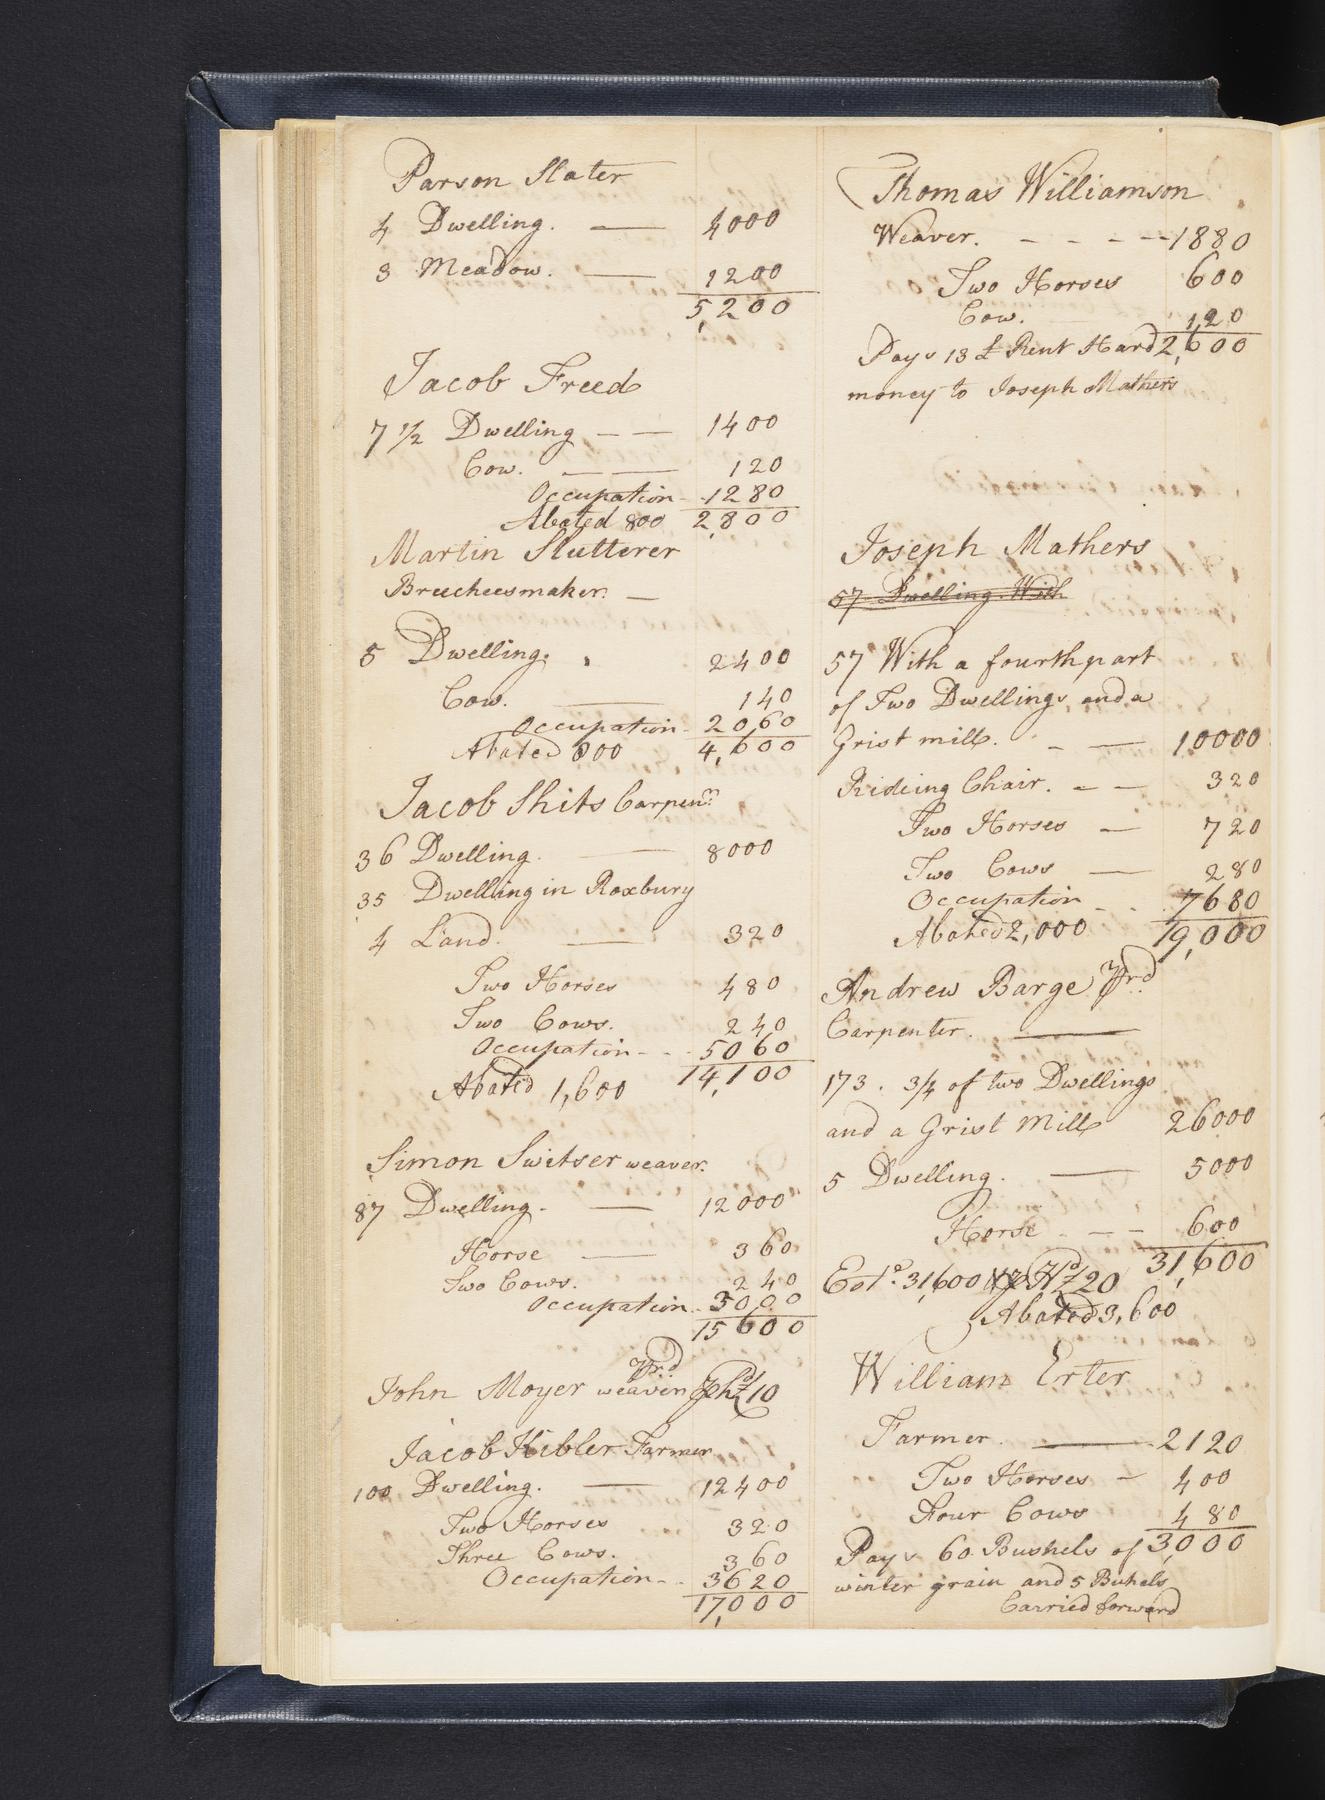 Parson Slater
4 Dwelling. — 4000
3 Meadow. — 1200
5,200
Jacob Freed
7 1/2 Dwelling — — 1400
Cow. — — 120
Occupation - 1280
Abated 800 2,800
Martin Slutterer
Breecheesmaker. —
5 Dwelling. 2400
Cow. — 140
Occupation - 2060
Abated 800 4,600
Jacob Shits Carpenr.
36 Dwelling. — 8000
35 Dwelling in Roxbury
4 Land. — 320
Two Horses 480
Two Cows. 240
Occupation - - 5060
Abated 1,600 14,100
Simon Switser weaver.
87 Dwelling. — 12000
Horse — 360
Two Cows. 240
Occupation - 3000
15600
John Moyer weaver 10
Jacob Hibler Farmer
100 Dwelling. — 12400
Two Horses 320
Three Cows. 360
Occupation - - 3620
17,000
Thomas Williamson
Weaver. - - - - 1880
Two Horses 600
Cow. 120
Pays 13 £ Rent Hard 2,600
money to Joseph Mathers
Joseph Mathers
57 Dwelling With
57 With a fourth part
of Two Dwellings and a
Grist mill. - — 10000
Rideing Chair. - - 320
Two Horses — 720
Two Cows — 280
Occupation - - 7680
Abated 2,000 19,000
Andrew Barge
Carpenter. —
173. 3/4 of two Dwellings
and a Grist Mill 26000
5 Dwelling. — 5000
Horse - — 600
31,600
Estd. 31,600 20
Abated 3,600
William Erter
Farmer. — 2120
Two Horses — 400
Four Cows 480
Pays 60 Bushels of 3,000
winter grain and 5 Buhels
Carried forward